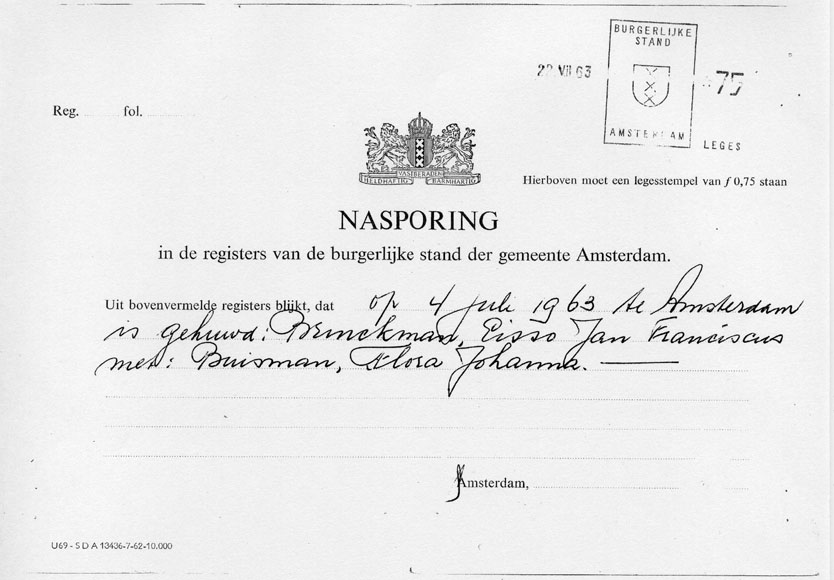 BURGERLIJKE
STAND
22 VII 63
75
AMSTERDAM
LEGES
Reg. fol.
HELDHAFTIG VASTBERADEN BARMHARTIG
Hierboven moet een legesstempel van ƒ 0,75 staan
NASPORING
in de registers van de burgerlijke stand der gemeente Amsterdam.
Uit bovenvermelde registers blijkt, dat op 4 juli 1963 te Amsterdam
is gehuwd: Brinckman, Eisso Jan Franciscus
met: Buisman, Flora Johanna.
Amsterdam,
U69 - S D A 13436-7-62-10.000